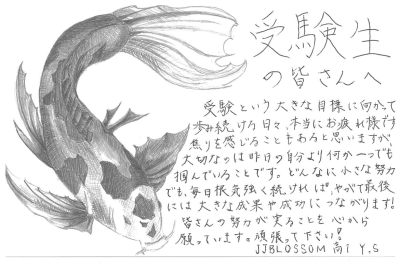 受験生
の皆さんへ
受験という大きな目標に向かって
歩み続ける日々、本当にお疲れ様です
焦りを感じることもあると思いますが
大切なのは昨日の自分より何か一つでも
掴んでいることです。どんなに小さな努力
でも、毎日根気強く続ければ、やがて最後
には大きな成果や成功につながります!
皆さんの努力が実ることを心から
願っています。頑張って下さい!
JJBLOSSOM 高1 Y.S